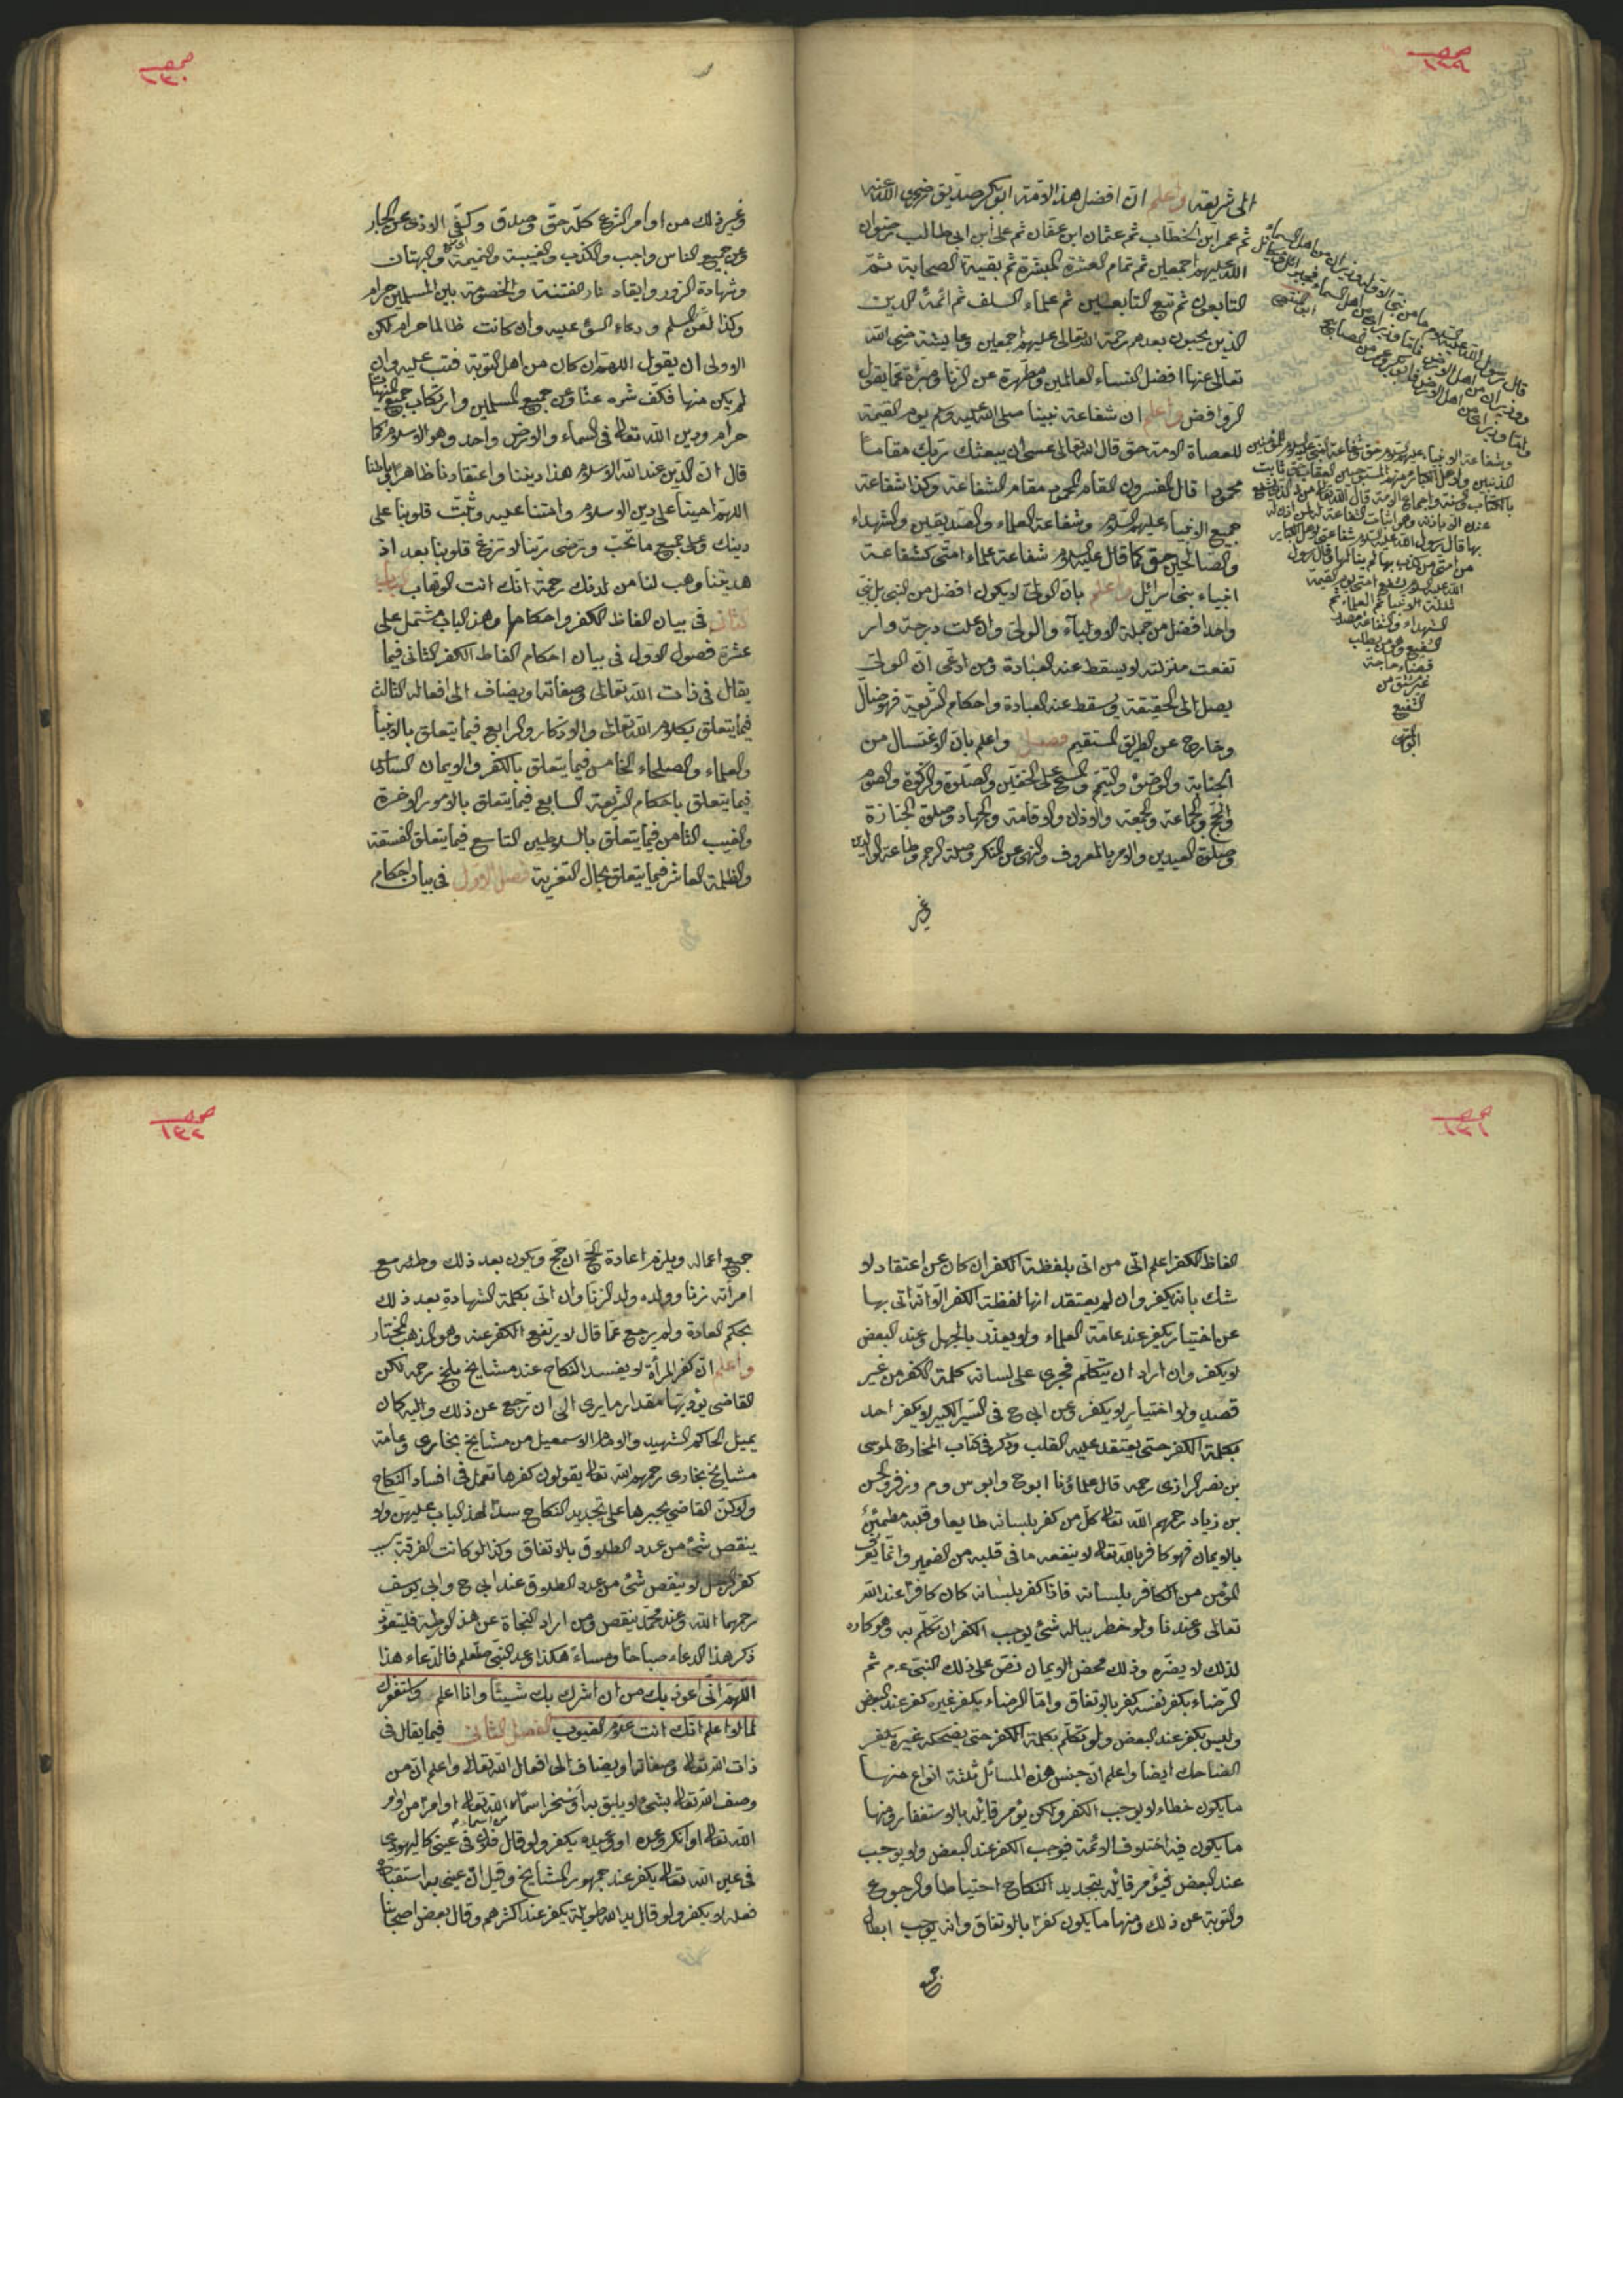 صحـ ١٢٩
الى شريعته واعلم ان افضل هذه الامة ابو بكر صديق رضى الله عنه
ثم عمر ابن الخطاب ثم عثمان ابن عفان ثم على ابن ابى طالب رضوان
الله عليهم اجمعين ثم تمام العشرة المبشرة ثم بقية الصحابة ثم
التابعون ثم تبع التابعين ثم علماء السلف ثم ائمة الدين
الذين يجيئون بعدهم رحمة الله تعالى عليهم اجمعين وعايشة رضى الله
تعالى عنها افضل النساء العالمين ومطهرة عن الزنا ومبرّة عما يقول
الروافض واعلم ان شفاعة نبينا صلى الله عليه وسلم يوم القيمة
للعصاة الامة حق قال الله تعالى عسى ان يبعثك ربك مقاما
محمودا قال المفسرون المقام المحمود مقام الشفاعة وكذا شفاعة
جميع الانبياء عليهم السلام وشفاعة العلماء والصديقين والشهداء
والصالحين حق كما قال عليه السلام شفاعة علماء امتى كشفاعة
انبياء بنى اسرائل واعلم بان الولى لا يكون افضل من النبى بل نبى
واحد افضل من جملة الاوليآء والولى وان علت درجة وار
تفعت منزلته لا يسقط عنه العبادة ومن ادعى ان الولى
يصل الى الحقيقة ويسقط عنه العبادة واحكام الشريعة فهو ضال
وخارج عن الطريق المستقيم فصل واعلم بان الاغتسال من
الجنابة والوضوء والتيمم والمسح على الخفين والصلوة والزكوة والصوم
والحج والجماعة والجمعة والاذان والاقامة والجهاد وصلوة الجنازة
وصلوة العيدين والامر بالمعروف والنهى عن المنكر وصلة الرحم وطاعة الوالدين
غير
قال رسول الله عليه السلام ما من نبى الا وله وزيران من اهل السماء
ووزيران من اهل الارض فاما وزيراى من اهل السماء فجبرائل وميكائل
واما وزيراى من اهل الارض فابو بكر وعمر من المصابيح انتهى
وشفاعة الانبياء عليهم السلام حق وشفاعة نبينا عليه السلام للمؤمنين
المذنبين ولاهل الكبائر منهم المستوجبين العقاب حق ثابت
بالكتاب والسنة واجماع الامة قال الله تعالى من ذا الذى يشفع
عنده الا باذنه وهو اثبات الشفاعة لمن اذن له
بها قال رسول الله عليه السلام شفاعتى لاهل الكبائر
من امتى من كذب بها لم ينالها وقال رسول
الله عليه السلام يشفع امتى يوم القيمة
ثلثة الانبياء ثم العلماء ثم
الشهداء والشفاعة مصدر
الشفيع وهو من يطلب
قضاء حاجة
غير مشتق من
الشفع
صحـ ١٣٠
وغير ذلك من اوامر الشرع كله حق وصدق وكفّ الاذى عن الجار
وعن جميع الناس واجب والكذب والغيبة والنميمة والبهتان
وشهادة الزور وايقاد نار الفتنة والخصومة بين المسلمين حرام
وكذا لعن المسلم ودعاء السوء عليه وان كانت ظالما حرام لكن
الاولى ان يقول اللهم ان كان من اهل التوبة فتب عليه وان
لم يكن منها فكف شره عنا وعن جميع المسلمين وارتكاب جميع المنهيات
حرام ودين الله تعالى فى السماء والارض واحد وهو الاسلام كما
قال ان الدين عند الله الاسلام هذا ديننا واعتقادنا ظاهرا وباطنا
اللهم احينا على دين الاسلام وامتنا عليه وثبت قلوبنا على
دينك وعلى جميع ما تحب وترضى ربنا لا تزغ قلوبنا بعد اذ
هديتنا وهب لنا من لدنك رحمة انك انت الوهاب الباب
الثانى فى بيان الفاظ الكفر واحكامها وهذا الباب مشتمل على
عشرة فصول الاول فى بيان احكام الفاظ الكفر الثانى فيما
يقال فى ذات الله تعالى وصفاته ويضاف الى افعاله الثالث
فيما يتعلق بكلام الله تعالى والاذكار والرابع فيما يتعلق بالانبيا
والعلماء والصلحاء الخامس فيما يتعلق بالكفر والايمان السادس
فيما يتعلق باحكام الشريعة السابع فيما يتعلق بالامور الاخرة
والغيب الثامن فيما يتعلق بالسلاطين التاسع فيما يتعلق الفسقة
والظلمة العاشر فيما يتعلق بحال التعزية فصل الاول فى بيان احكام
صحـ ١٣١
الفاظ الكفر اعلم انى من اتى بلفظة الكفر ان كان عن اعتقاد لا
شك بانه يكفر وان لم يعتقد انها لفظة الكفر الا انه اتى بها
عن اختيار يكفر عند عامة العلماء ولا يعذر بالجهل وعند البعض
لا يكفر وان اراد ان يتكلم فجرى على لسانه كلمة الكفر من غير
قصد ولا اختيار لا يكفر وعن ابى ح فى السير الكبير لا يكفر احد
بكلمة الكفر حتى يعتقد عليه القلب وذكر فى كتاب المخارج لموسى
بن نصر الرازى رحمه قال علماؤنا ابو ح وابو س وم وزفر والحسن
بن زياد رحمهم الله تعالى كل من كفر بلسانه طايعا وقلبه مطمئن
بالايمان فهو كافر بالله تعالى لا ينفعه ما فى قلبه من الضمير وانما يعرف
المؤمن من الكافر بلسانه فاذا كفر بلسانه كان كافرا عند الله
تعالى وعندنا ولو خطر بباله شئ يوجب الكفر ان تكلم به وهو كاره
لذلك لا يضره وذلك محض الايمان نص على ذلك النبى عم ثم
الرضاء بكفر نفسه كفر بالاتفاق واما الرضاء بكفر غيره كفر عند البعض
وليس بكفر عند البعض ولو تكلم بكلمة الكفر حتى يضحكه غيره يكفر
الضاحك ايضا واعلم ان جنس هذه المسائل ثلثة انواع منها
ما يكون خطاء لا يوجب الكفر ولكن يؤمر قايله بالاستغفار ومنها
ما يكون فيه اختلاف الائمة فيوجب الكفر عند البعض ولا يوجب
عند البعض فيؤمر قائله بتجديد النكاح احتياطا والرجوع
والتوبة عن ذلك ومنها ما يكون كفرا بالاتفاق وانه يوجب ابطال
جميع
صحـ ١٣٢
جميع اعماله ويلزم اعادة الحج ان حج ويكون بعد ذلك وطئه مع
امرأته زنا وولده ولد الزنا وان اتى بكلمة الشهادة بعد ذلك
بحكم العادة ولم يرجع عما قال لا يرتفع الكفر عنه وهو المذهب المختار
واعلم ان كفر المرأة لا يفسد النكاح عند مشايخ بلخ رحمه لكن
القاضى يؤدبها مقدار ما يرى الى ان ترجع عن ذلك واليه كان
يميل الحاكم الشهيد والامام الاسمعيل من مشايخ بخارى وعامة
مشايخ بخارى رحمهم الله تعالى يقولون كفرها تعمل فى افساد النكاح
ولكن القاضى يجبرها على تجديد النكاح سدا لهذا الباب عليهن ولا
ينقص شئ من عدد الطلاق بالاتفاق وكذا لو كانت الفرقة بسبب
كفر الرجل لا ينقص شئ من عدد الطلاق عند ابى ح وابى يوسف
رحمهما الله وعند محمد ينقص ومن اراد النجاة عن هذه الورطة فليتعوذ
ذكر هذا الدعاء صباحا ومساء هكذا وعد النبى صلعم فالدعاء هذا
اللهم انى اعوذ بك من ان اشرك بك شيئا وانا اعلم واستغفرك
لما لا اعلم انك انت علام الغيوب الفصل الثانى فيما يقال فى
ذات الله تعالى وصفاته ويضاف الى افعال الله تعالى واعلم ان من
وصف الله تعالى بشئ لا يليق به او سخر اسماء الله تعالى او امرا من اوامر
الله تعالى او انكر وعده او وعيده يكفر ولو قال فلان فى عينى كاليهودى
فى عين الله تعالى يكفر عند جمهور المشايخ وقيل ان عنى به استقباح
فعله لا يكفر ولو قال يد الله طويلة يكفر عند اكثرهم وقال بعض اصحابنا